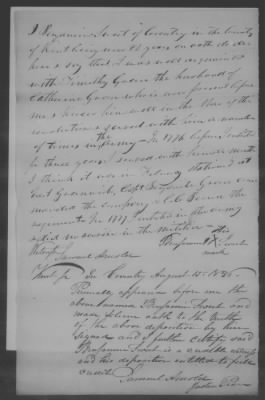 I Benjamin Sweet of Coventry in the County
of Kent being now 78 years on oath do de
pose & say that I was well acquainted
with Timothy Green the husband of
Catherine Green who is now present before
me & knew him well in the War of the
revolution & served with him a number
of times in the
infantry - In 1776 before I enlisted
to three years I served with him months
I think it was in February stationed at
East Greenwich Capt Green com
manded the company & Col
regiment In 1777 I enlisted in the army
& did no service in the militia -
his
Benjamin X Sweet
mark
Witness
Samuel Arnold
Kent ss In Coventry August 15 1836
Personally appeared before me the
above named Benjamin Sweet and
made solemn oath to the truth
of the above deposition by him
signed and I further certify said
Benjamin Sweet is a credible witness
and his deposition entitled to full
credit
Samuel Arnold
Justice Peace